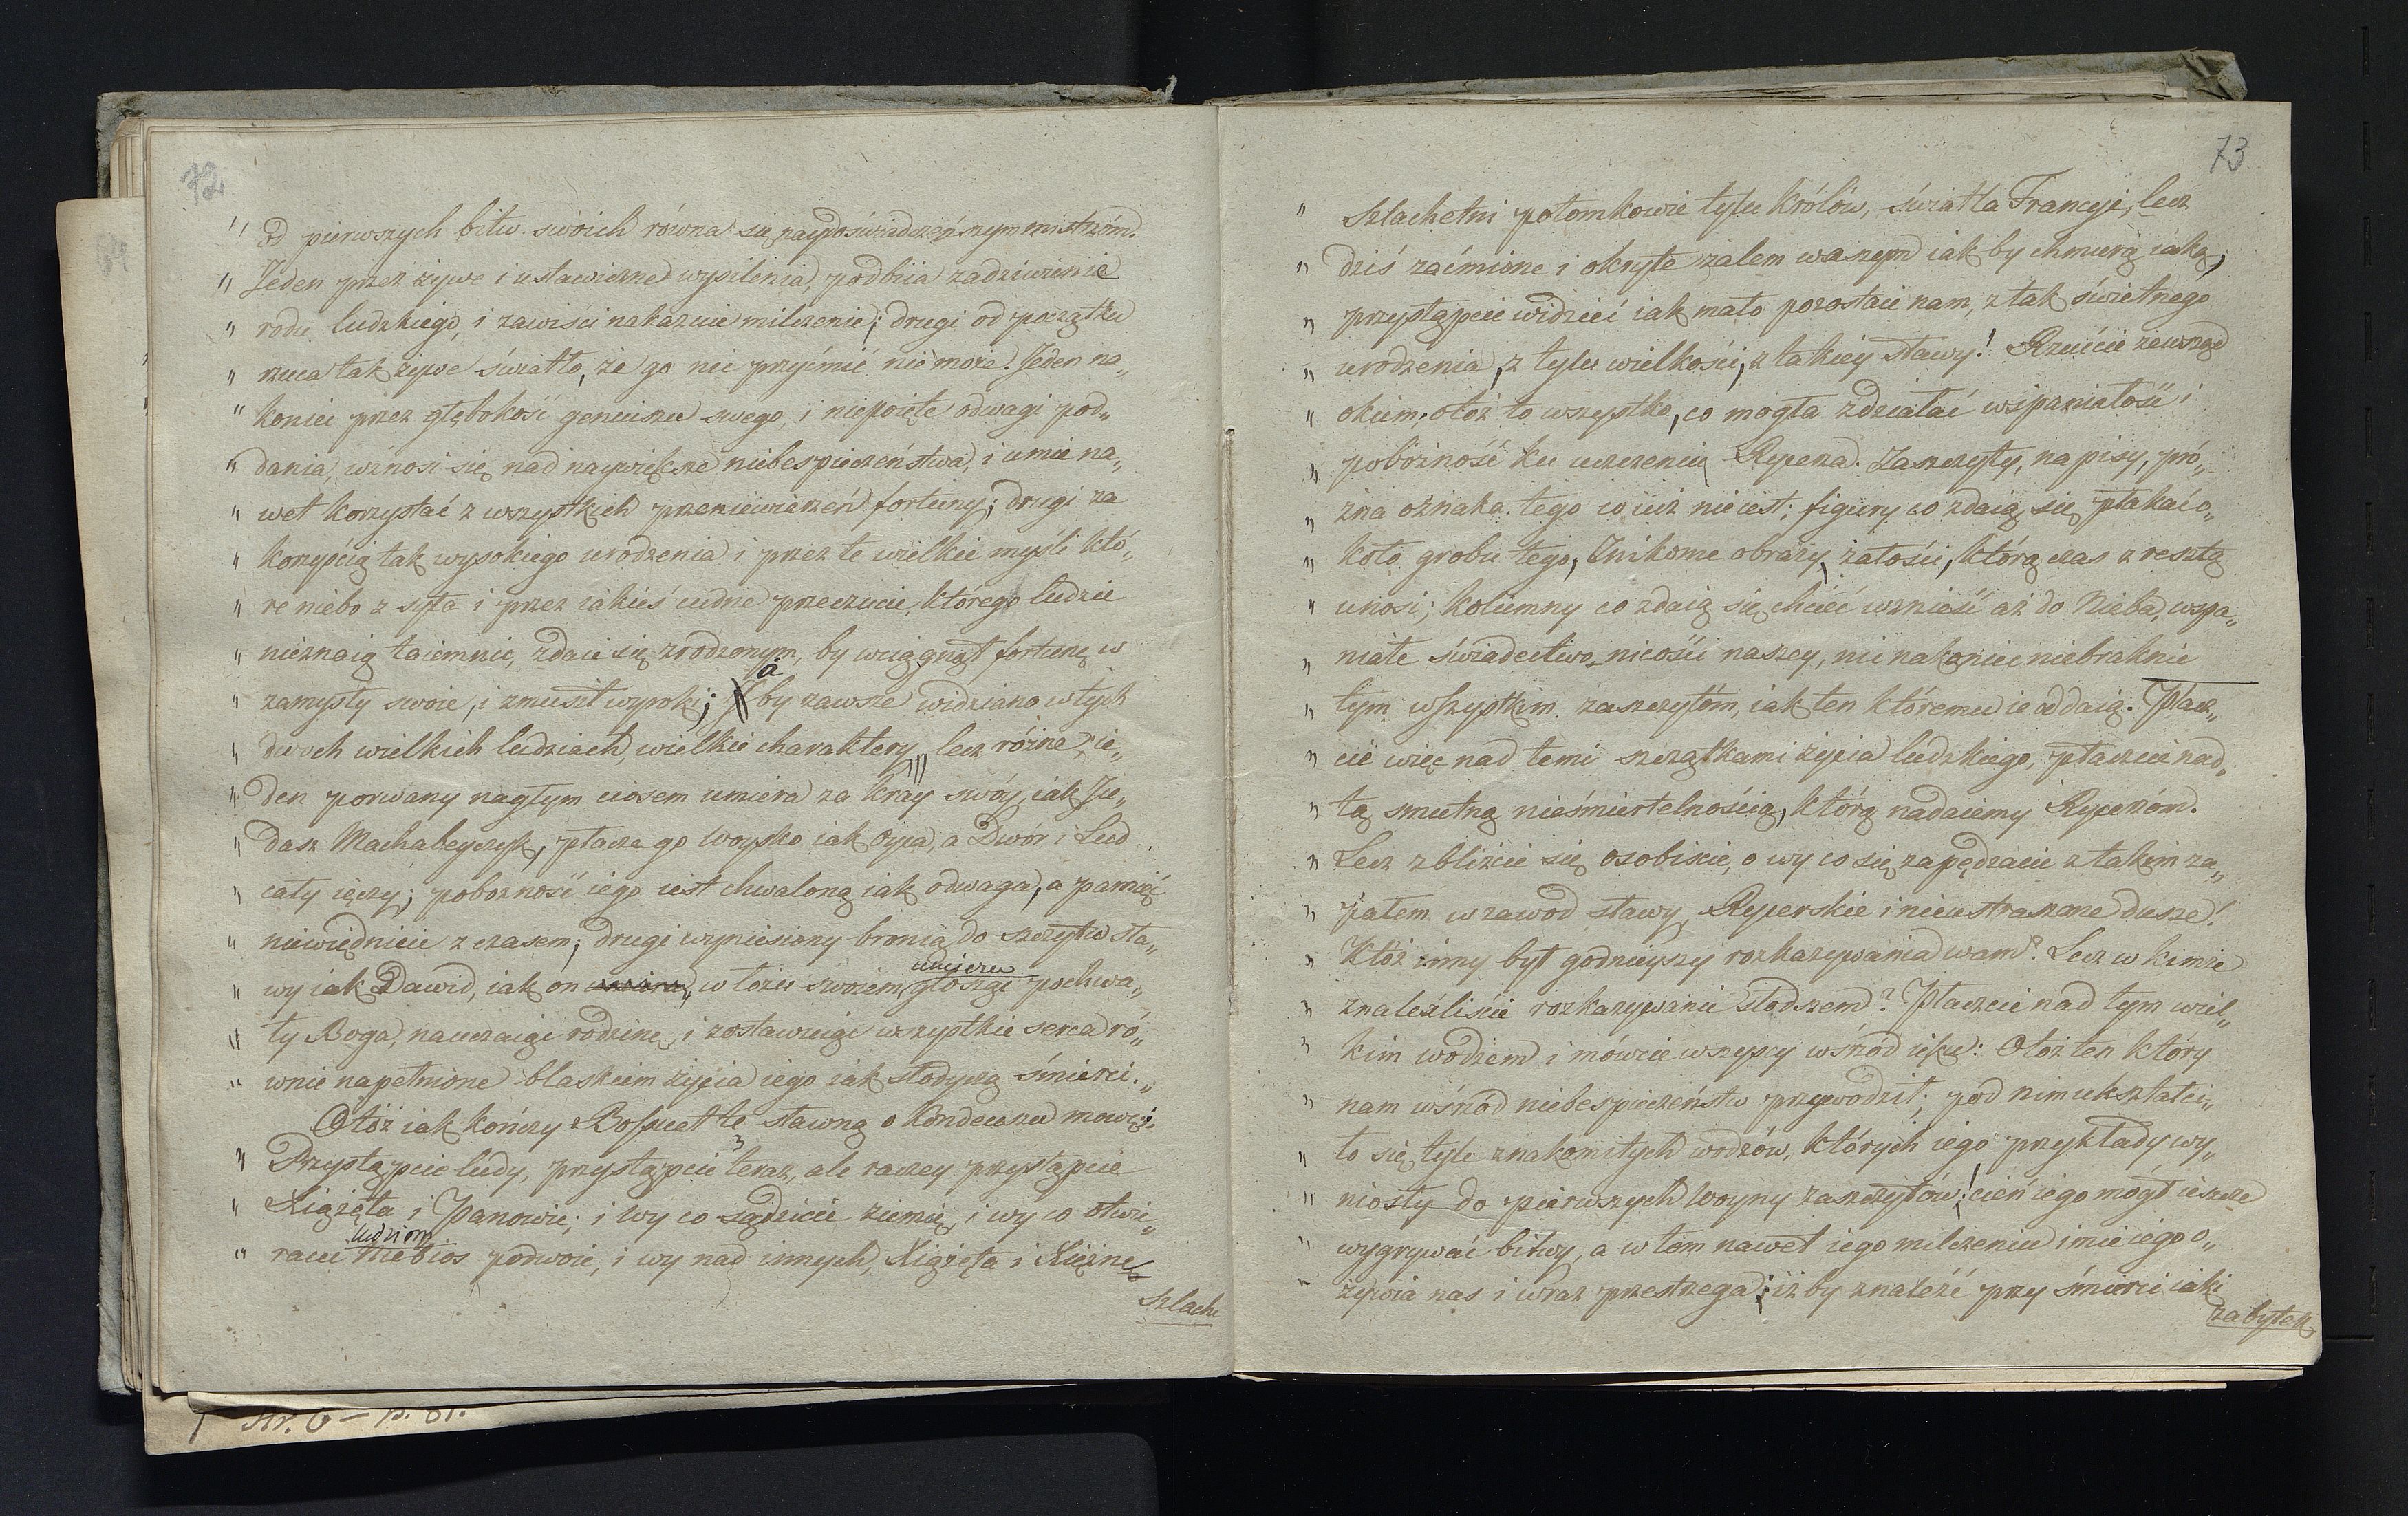 72
" od pierwszych bitw swoich równa się naydoświadczeńsnym mistrzóm.
" Jeden przez żywe i ustawiczne wysilenia, podbiia zadziwienie
" rodu ludzkiego, i zawiści nakazuie milczenie; drugi od początku
" rzuca tak żywe światło, że go nic przyćmić nie może. Jeden na„
" koniec przez głębokość geniuszu swego, i niepoięte odwagi pod„
" dania, wznosi się nad naywiększe niebespieczeństwa, i umie na„
" wet korzystać z wszystkich przeniewierzeń fortuny; drugi za
" korzyścią tak wysokiego urodzenia i przez te wielkie myśli któ„
" re niebo z syła i przez iakieś cudne przeczucie, którego ludzie
" nieznaią taiemnic, zdaie się zrodzonym, by wciągnął fortunę w
" zamysły swoie, i zmusił wyroki; a by zawsze widziano w tych
" dwoch wielkich ludziach, wielkie charaktery, lecz różne, ie„
" den porwany nagłym ciosem umiera za kray swóy, iak Ju„
" dasz Machabeyczyk, płacze go woysko iak oyca, a Dwór i Lud
" cały ięczy; pobożność iego iest chwaloną iak odwaga, a pamięć
" niewiędnieie z czasem; drugi wyniesiony bronią do szczytu sła„
umiera
" wy iak Dawid, iak on w łożu swoiem głosząc pochwa„
" ły Boga, nauczaiąc rodzinę, i zostawuiąc wszystkie serca ró„
" wnie napełnione blaskiem życia iego iak słodyczą śmierci.„
Otóż iak kończy Bossuet tę sławną o Kondeuszu mowę:
" Przystąpcie ludy, przystąpcie teraz, ale raczey przystąpcie
" Xiążęta i Panowie; i wy co sądzicie ziemię, i wy co otwie„
ludziom
" racie niebios podwoie, i wy nad innych, Xiążęta i Xiężne
Szlache
73
" Szlachetni potomkowie tylu królów, światła Francyi, lecz
" dziś zaćmione i okryte żalem waszym iak by chmurą iaką,
" przystąpcie widzieć iak mało pozostaie nam, z tak świetnego
" urodzenia, z tylu wielkości, z takiéy sławy! Rzućcie zewsząd
" okiem, otóż to wszystko, co mogła zdziałać wspaniałość i
" pobożność ku uczczeniu Rycerza. Zaszczyty, napisy, pró„
" żna oznaka tego co iuż nie iest; figury co zdaią się płakać o„
" koło grobu tego, znikome obrazy żałości, którą czas z resztą
" unosi; kolumny co zdaią się chcieć wznieść aż do Nieba, wspa„
" niałe świadectwo nicości naszey, nic nakoniec niebraknie
" tym wszystkim zaszczytóm, iak ten któremu ie oddaią. Płacz„
" cie więc nad temi szczątkami życia ludzkiego, płaczcie nad„
" tą smutną nieśmiertelnością, którą nadaiemy Rycerzóm.
" Lecz zbliżcie się osobiście, o wy co się zapędzacie z takim za„
" pałem w zawod sławy, Rycerskie i nieustraszone dusze!
" Któż inny był godnieyszy rozkazywania wam? Lecz w kimże
" znaleźliście rozkazywanie słodszem? Płaczcie nad tym wiel„
" kim wodzem i mówcie wszyscy wśród ięku: Otóż ten który
" nam wśród niebespieczeństw przywodził; pod nim ukształci„
" ło się tyle znakomitych wodzów, których iego przykłady wy„
" niosły do pierwszych woyny zaszczytów! cień iego mógł ieszcze
" wygrywać bitwy, a w tem nawet iego milczeniu imie iego o„
" żywia nas i wraz przestrzega; iż by znaleźć przy śmierci iaki
zabytek